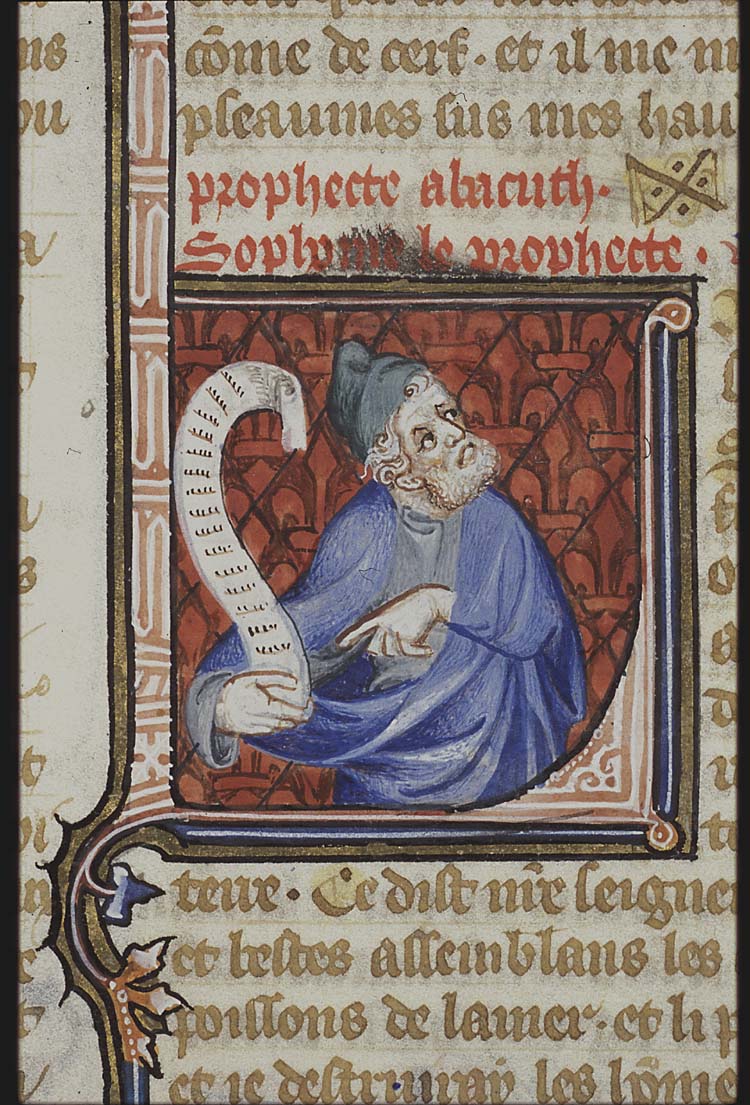 cōme de cerf. et il me m
pseaumes sus mes hau
prophecte abacuth.
Sophonie le prophecte.
terre. Ce dist nrē seigne
et bestes assemblans les
poissons de la mer. et li p
et ie destruiray les hōme